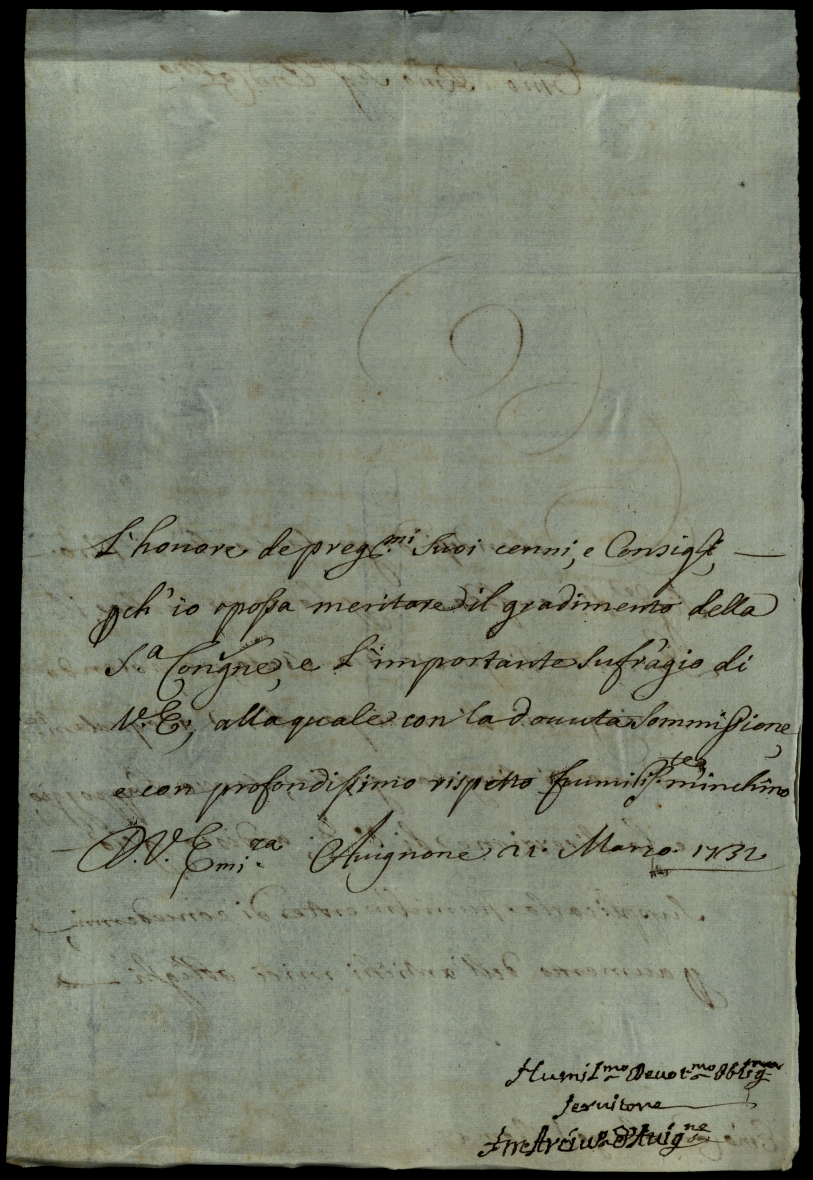 L'honore de preg.mi suoi cenni, e Consigli,
pch' io possa meritare il gradimento della
S.a Cong.ne, e L'importante sufragio di
V. E., alla quale con la douuta sommissione,
e con profondissimo rispetto humiliss.te m'inchino
D. V. Emi.za Auignone 21. Marzo. 1732
Humil.mo Deuot.mo Oblig.mo
seruitore
Arciu.o d'Auig.ne